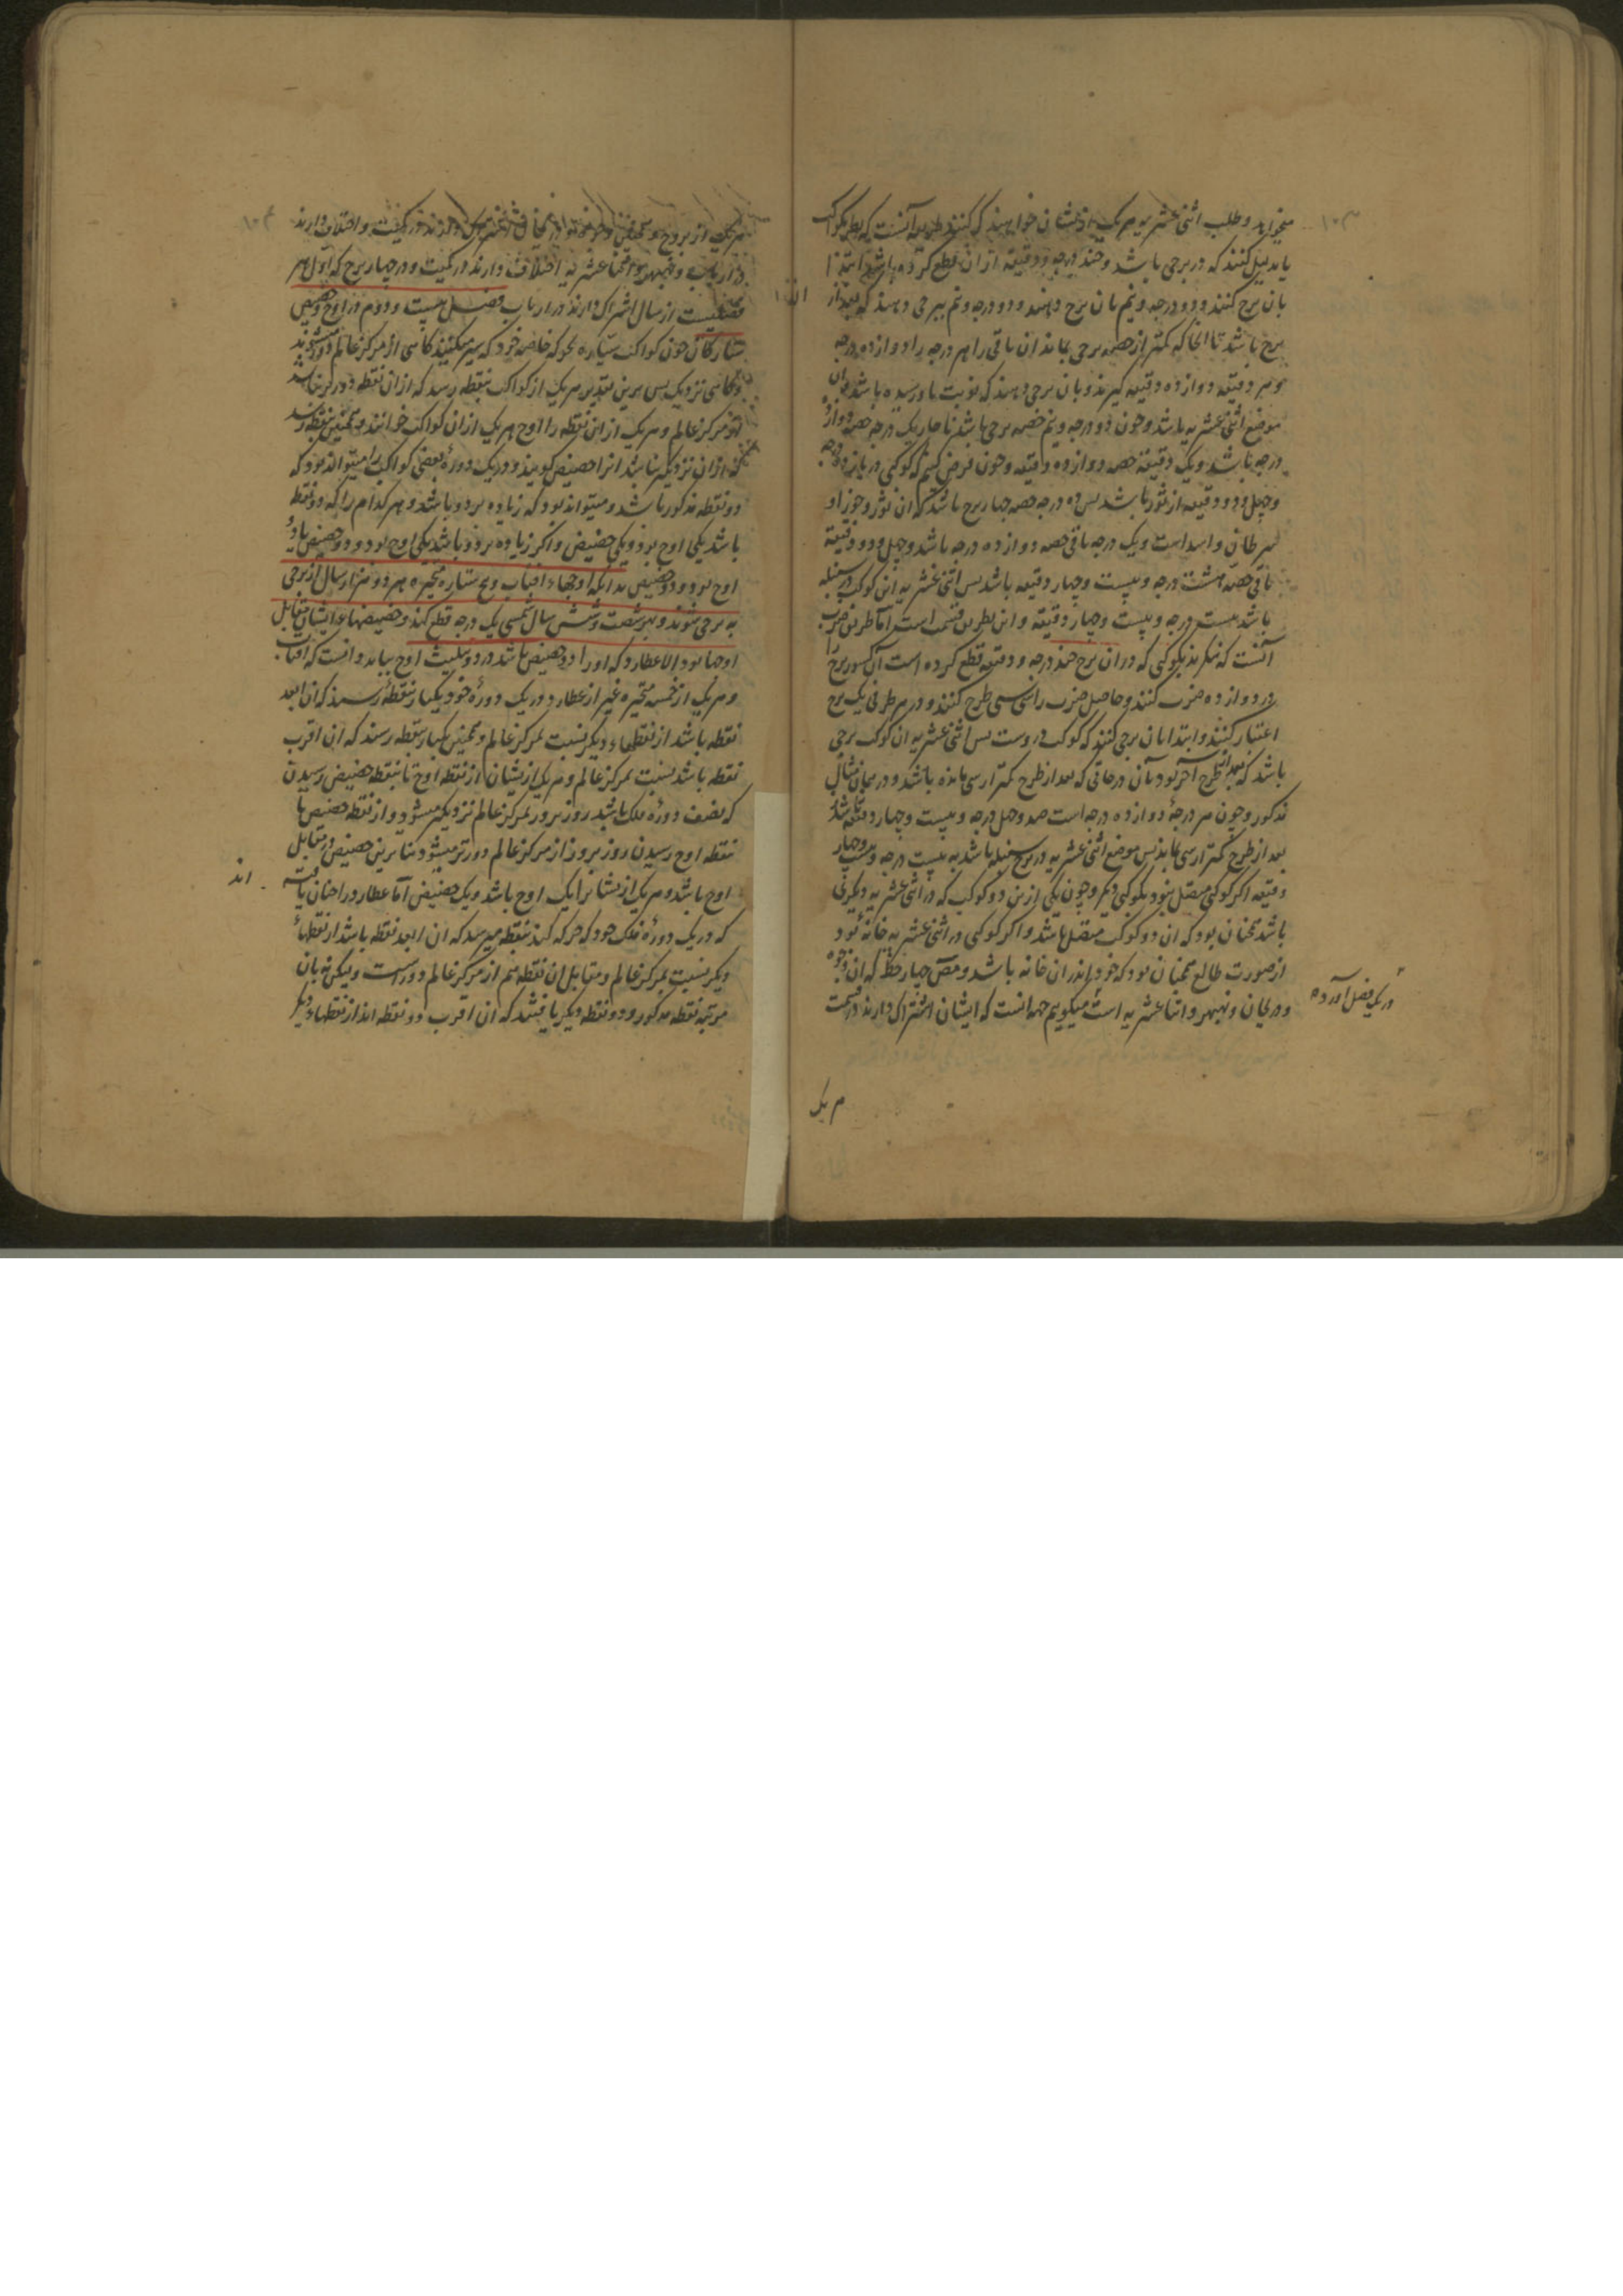 میخواهد وطلب اثنی عشریه هر یک از ایشان خواهند که کنند طریقه آنست که نظر بکوکب
یا بدلیل کنند که در برجی باشد وچند درجه ودقیقه ازان قطع کرده باشد ابتدا
بان برج کنند ودو درجه ونیم بان برج دهند ودو درجه ونیم ببرجی دهند که بعد از
برج باشد تا انجا که کمتر از حصه برجی بماند ان باقی را هر درجه را دوازده درجه
وهر دقیقه دوازده دقیقه گیرند وبان برجی دهند که نوبت باو رسیده باشد ان
موضع اثنی عشریه باشد وچون دو درجه ونیم حصه برجی باشد ناچار یک درجه حصه دوازده
درجه باشد ویک دقیقه حصه دوازده دقیقه وچون فرض کنیم که کوکبی در یازده درجه
وچهل ودو دقیقه از ثور باشد پس ده درجه حصه چهار برج باشد که ان ثور وجوزا و
سرطان واسد است ویک درجه باقی حصه دوازده درجه باشد وچهل ودو دقیقه
باقی حصه هشت درجه وبیست وچهار دقیقه باشد پس اثنی عشریه این کوکب در سنبله
باشد بیست درجه وبیست وچهار دقیقه واین بطریق قسمت است اما طریق ضرب
آنست که بنگرند بکوکبی که دران برج چند درجه ودقیقه قطع کرده است آن
در دوازده ضرب کنند وحاصل ضرب را سی سی طرح کنند ودر هر طرحی یک برج
اعتبار کنند وابتدا بان برجی کنند که کوکب در وست پس اثنی عشریه ان کوکب برجی
باشد که بعد از طرح آخر بود بآن درجاتی که بعد از طرح کمتر از سی مانده باشد ودر همان مثال
مذکور وچون هر درجهٔ دوازده درجه است صد وچهل درجه وبیست وچهار دقیقه باشد
بعد از طرح کمتر از سی بماند پس موضع اثنی عشریه در برج سنبله باشد به بیست درجه وبیست وچهار
دقیقه اکر کوکبی متصل بنود بکوکبی دیکر وچون یکی ازین دو کوکب که در اثنی عشریه دیکری
باشد همچنان بود که ان دو کوکب متصل باشد واکر کوکبی در اثنی عشریه خانهٔ بود
از صورت طالع همچنان بود که خود اندران خانه باشد ومص چهار حظ که ان وجوه
ودریجان ونهبهر واثناعشریه است میکوییم جهه انست که ایشان اشتراک دارند در قسمت
در یک فصل آورده
هر یک
هر یک از بروج
در ارباب ونهبهر واثناعشریه اختلاف دارند در کمیت ودر چهار برج که اول هر
فصلیست از سال اشتراک دارند در ارباب فصل بیست ودوم در اوج وحضیض
ستارکان چون کواکب سیاره بحرکه خاصه خود که سیر میکنند کاهی از مرکز عالم دور میشوند
وکاهی نزدیک پس برین تقدیر هر یک از کواکب بنقطه رسد که ازان نقطه دورتر نباشد
از مرکز عالم وهر یک از این نقطه را اوج هر یک ازان کواکب خوانند وهمچنین بنقطه رسد
که ازان نزدیکتر نباشد انرا حضیض کویند ودر یک دورهٔ بعضی کواکب را میتواند بود که
دو نقطه مذکور باشد ومیتواند بود که زیاده بر دو باشد وهر کدام را که دو نقطه
باشد یکی اوج بود ویکی حضیض واکر زیاده بر دو باشد یکی اوج بود ودو حضیض یا دو
اوج بود ودو حضیض بدانکه اوجهاء افتاب وپنج ستاره متحیره هر دو هزار سال از برجی
به برجی شوند وبهر شصت وشش سال شمسی یک درجه قطع کند وحضیضهاء ایشان مقابل
اوجها بود الا عطارد که اورا دو حضیض باشد در دو تثلیث اوج بباید دانست که افتاب
وهر یک از خمسه متحیره غیر از عطارد در یک دورهٔ خود یکبار بنقطهٔ رسند که ان ابعد
نقطه باشد از نقطهاء دیکر نسبت بمرکز عالم وهمچنین یکبار بنقطه رسند که ان اقرب
نقطه باشد بنسبت بمرکز عالم وهر یک ازیشان از نقطه اوج تا بنقطه حضیض رسیدن
که نصف دورهٔ فلک باشد روز بروز بمرکز عالم نزدیکتر میشود واز نقطه حضیض تا
نقطه اوج رسیدن روز بروز از مرکز عالم دورتر میشود بنا برین حضیض در مقابل
اوج باشد وهر یک ازیشانرا یک اوج باشد ویک حضیض اما عطارد را چنان یافته
اند
که در یک دورهٔ فلک خود که حرکه کند بنقطه میرسد که ان ابعد نقطه باشد از نقطهاء
دیکر نسبت بمرکز عالم ومقابل ان نقطه هم از مرکز عالم دورست ولیکن نه بان
مرتبه نقطه مذکور ودو نقطه دیکر یافتند که ان اقرب دو نقطه اند از نقطهاء دیکر